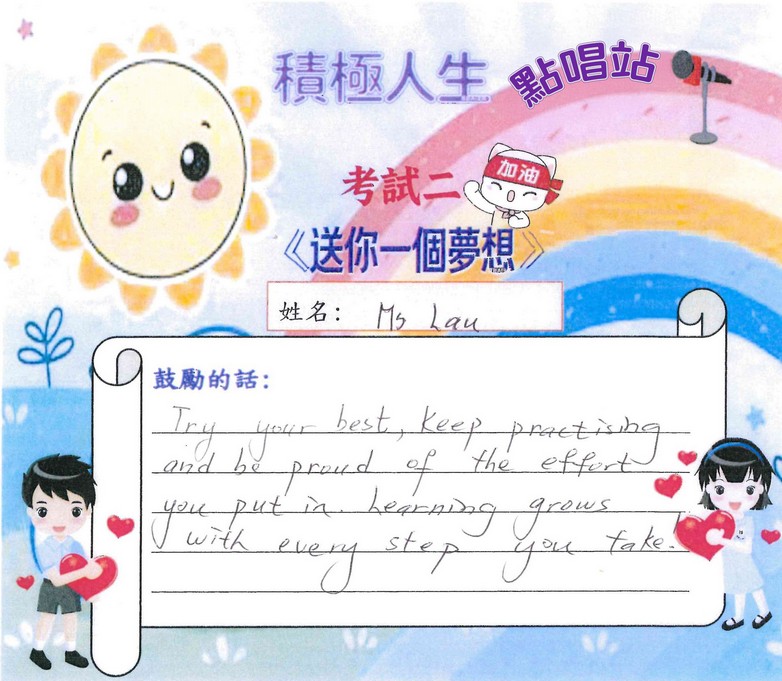 積極人生 點唱站
加油
考試二
《送你一個夢想》
姓名: Ms Lau
鼓勵的話:
Try your best, keep practising
and be proud of the effort
you put in. Learning grows
with every step you take.